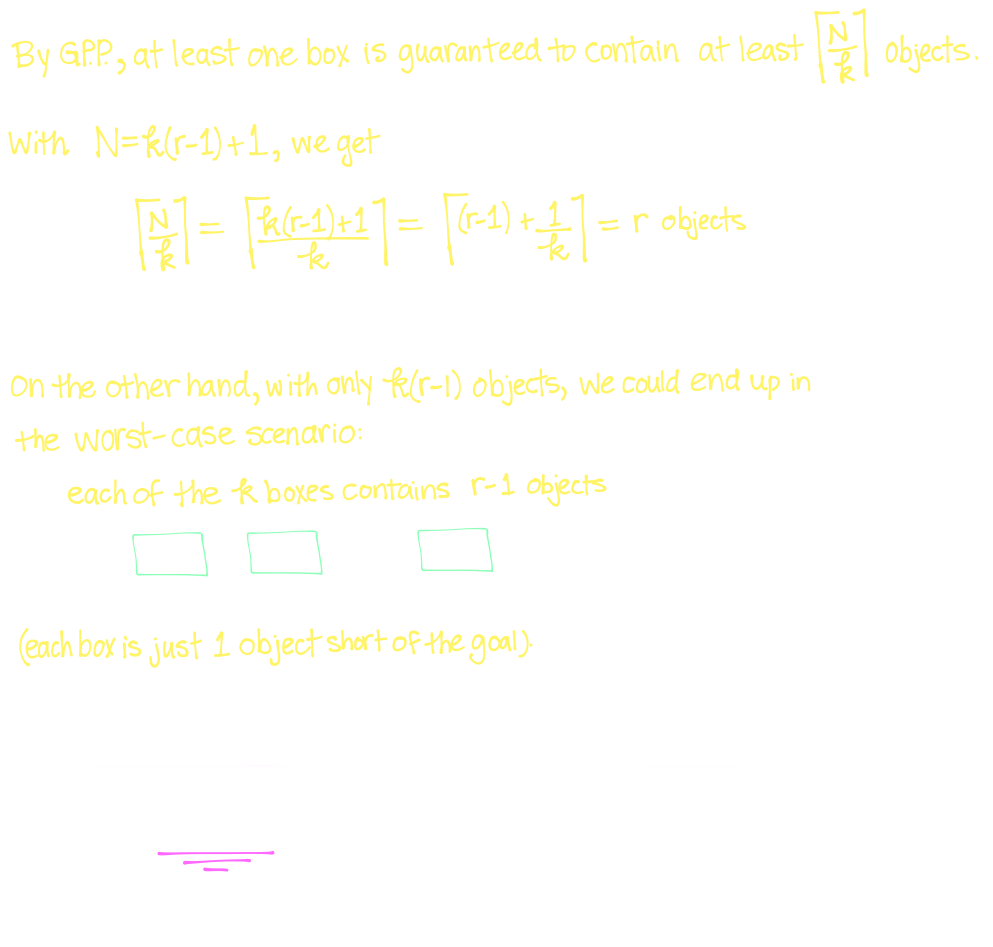 By G.P.P., at least one box is guaranteed to contain at least ⌈N/k⌉ objects.
With N=k(r-1)+1, we get
⌈N/k⌉ = ⌈(k(r-1)+1)/k⌉ = ⌈(r-1) + 1/k⌉ = r objects
On the other hand, with only k(r-1) objects, we could end up in
the worst-case scenario:
each of the k boxes contains r-1 objects
(each box is just 1 object short of the goal).